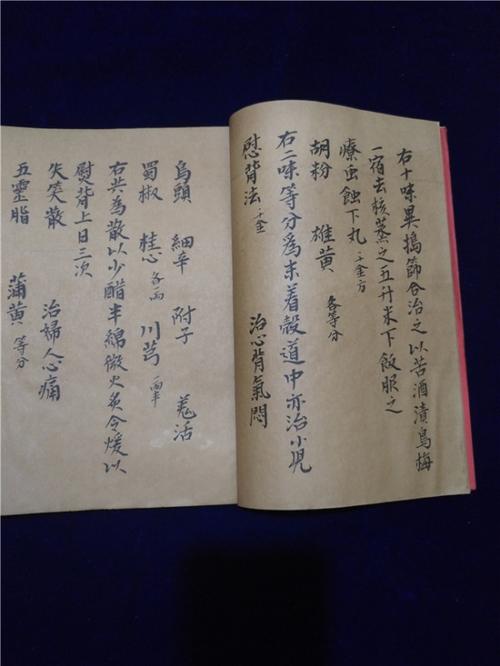 右十味異搗篩合治之以苦酒漬烏梅
一宿去核蒸之五升米下飯服之
療䘌蝕下丸 千金方
胡粉 雄黃 各等分
右二味等分為末着殼道中亦治小児
慰背法 千金 治心背氣悶
烏頭 細辛 附子 羗活
蜀椒 桂心 各両 川芎 両半
右共為散以少醋半綿微火炙令煖以
慰背上日三次
失笑散 治婦人心痛
五靈脂 蒲黃 等分